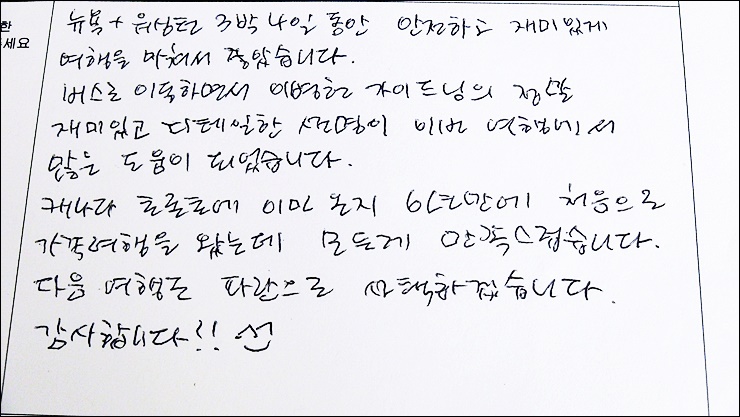 한
세요
뉴욕 + 워싱턴 3박 4일 동안 안전하고 재미있게
여행을 마쳐서 좋았습니다.
버스로 이동하면서 이병헌 가이드님의 정말
재미있고 디테일한 설명이 이번 여행에서
많은 도움이 되었습니다.
캐나다 토론토에 이민 온지 6년만에 처음으로
가족여행을 왔는데 모든게 만족스럽습니다.
다음 여행도 파란으로 선택하겠습니다.
감사합니다!!